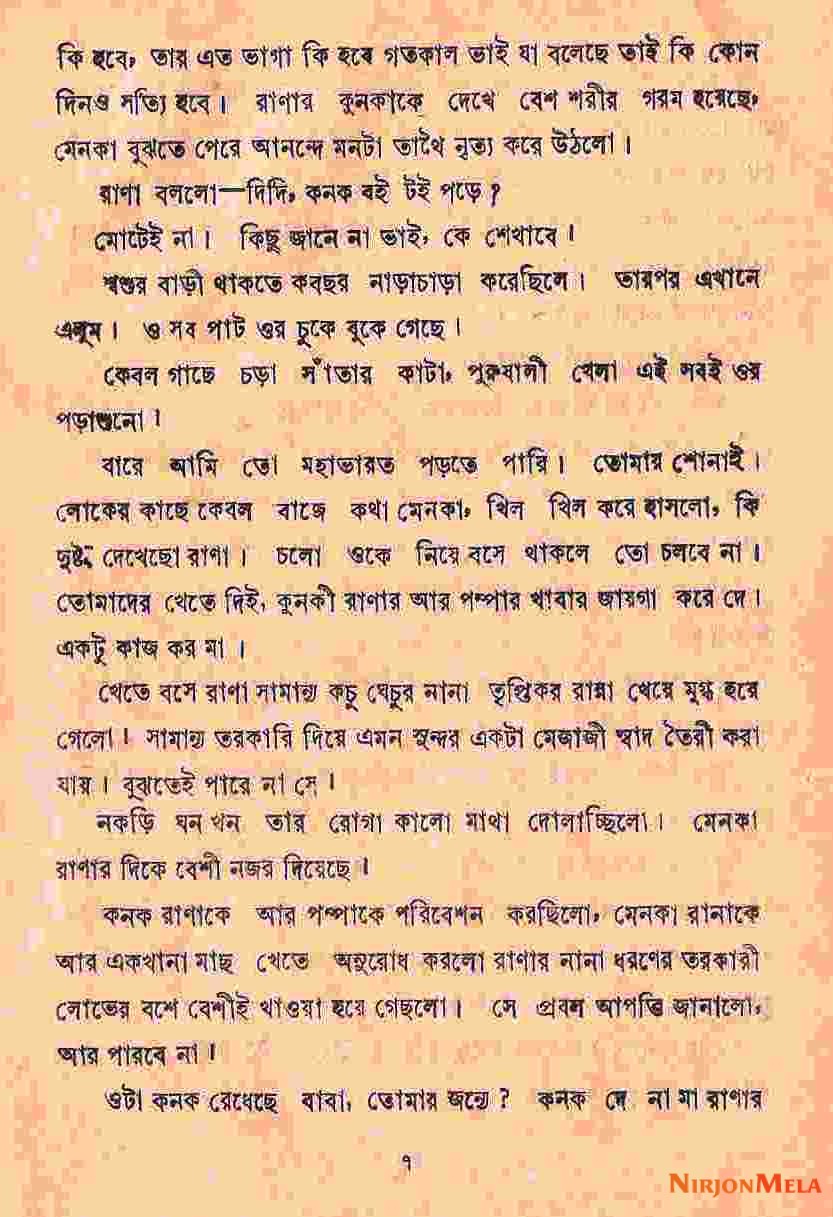 কি হবে, তার এত ভাগ্য কি হবে গতকাল ভাই যা বলেছে তাই কি কোন
দিনও সত্যি হবে। রাণার কুনকাকে দেখে বেশ শরীর গরম হয়েছে,
মেনকা বুঝতে পেরে আনন্দে মনটা তাথৈ নৃত্য করে উঠলো।
রাণা বললো—দিদি, কনক বই টই পড়ে?
মোটেই না। কিছু জানে না ভাই, কে শেখাবে।
শ্বশুর বাড়ী থাকতে কবছর নাড়াচাড়া করেছিলে। তারপর এখানে
এলুম। ও সব পাট ওর চুকে বুকে গেছে।
কেবল গাছে চড়া সাঁতার কাটা, পুরুষালী খেলা এই সবই ওর
পড়াশুনো।
বারে আমি তো মহাভারত পড়তে পারি। তোমায় শোনাই।
লোকের কাছে কেবল বাজে কথা মেনকা, খিল খিল করে হাসলো, কি
দুষ্টু দেখেছো রাণা। চলো ওকে নিয়ে বসে থাকলে তো চলবে না।
তোমাদের খেতে দিই, কুনকী রাণার আর পম্পার খাবার জায়গা করে দে।
একটু কাজ কর মা।
খেতে বসে রাণা সামান্য কচু ঘেচুর নানা তৃপ্তিকর রান্না খেয়ে মুগ্ধ হয়ে
গেলো। সামান্য তরকারি দিয়ে এমন সুন্দর একটা মেজাজী স্বাদ তৈরী করা
যায়। বুঝতেই পারে না সে।
নকড়ি ঘন খন তার রোগা কালো মাথা দোলাচ্ছিলো। মেনকা
রাণার দিকে বেশী নজর দিয়েছে।
কনক রাণাকে আর পম্পাকে পরিবেশন করছিলো, মেনকা রানাকে
আর একখানা মাছ খেতে অনুরোধ করলো রাণার নানা ধরণের তরকারী
লোভের বশে বেশীই খাওয়া হয়ে গেছলো। সে প্রবল আপত্তি জানালো,
আর পারবে না।
ওটা কনক রেধেছে বাবা, তোমার জন্যে? কনক দে না মা রাণার
৭
NIRJONMELA